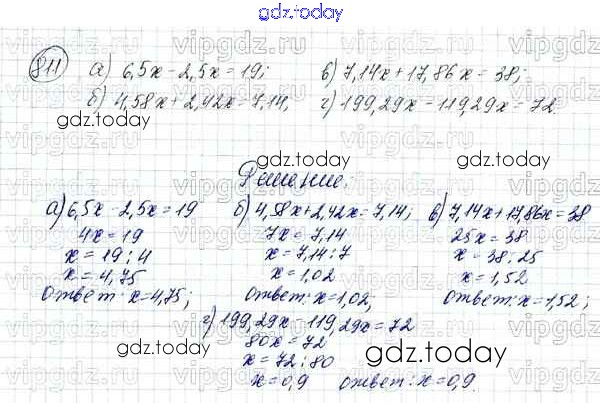 gdz.today
811 а) 6,5x - 2,5x = 19; в) 7,14x + 17,86x = 38;
б) 4,58x + 2,42x = 7,14; г) 199,29x - 119,29x = 72
gdz.today gdz.today
Решение:
а) 6,5x - 2,5x = 19 б) 4,58x + 2,42x = 7,14; в) 7,14x + 17,86x = 38
4x = 19 7x = 7,14 25x = 38
x = 19 : 4 x = 7,14 : 7 x = 38 : 25
x = 4,75 x = 1,02 x = 1,52
ответ: x = 4,75; ответ: x = 1,02; ответ: x = 1,52;
г) 199,29x - 119,29x = 72
80x = 72
gdz.today gdz.today
x = 72 : 80
x = 0,9 ответ: x = 0,9.